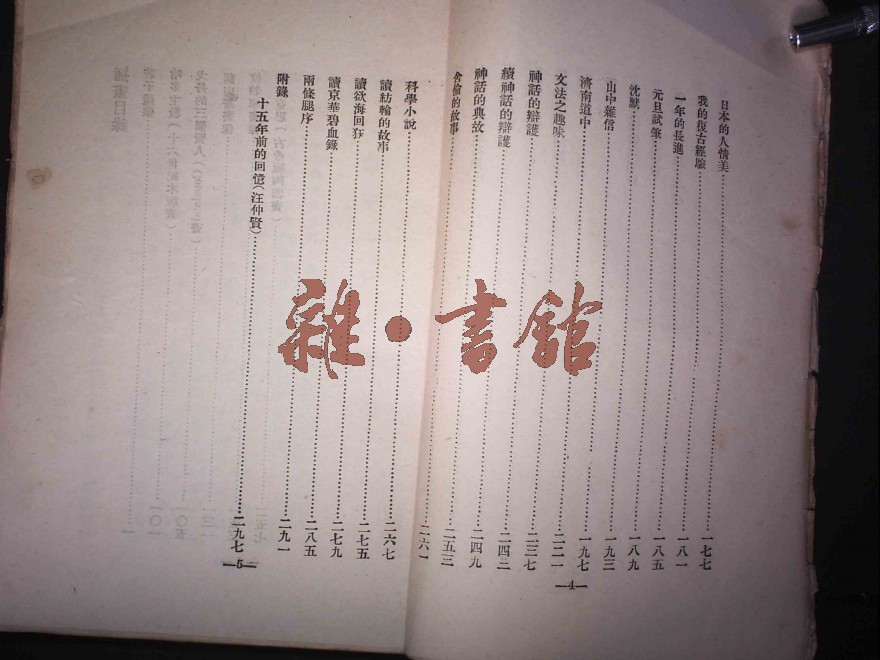 日本的人情美……一七七
我的復古經驗……一八一
一年的長進……一八五
元旦試筆……一八九
沈默……一九三
山中雜信……一九七
濟南道中……二二一
文法之趣味……二三七
神話的辯護……二四三
續神話的辯護……二四九
神話的典故……二五三
舍倫的故事……二六一
—4—
科學小說……二六七
讀紡輪的故事……二七五
讀欲海回狂……二七九
讀京華碧血錄……二八五
兩條腿序……二九一
附錄
十五年前的回憶(汪仲賢)……二九七
—5—
雜·書館